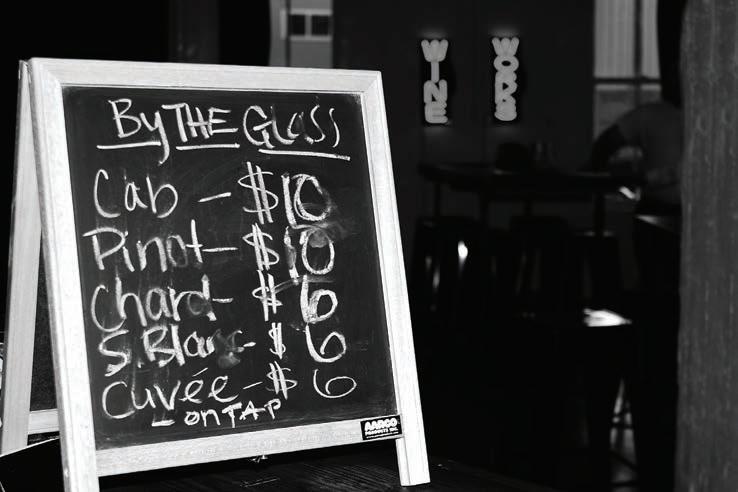 By THE Glass
Cab - $10
Pinot - $10
Chard - $6
S. Blanc - $6
Cuvée - $6
on TAP
AARCO
PRODUCTS INC.
WINE
WORKS